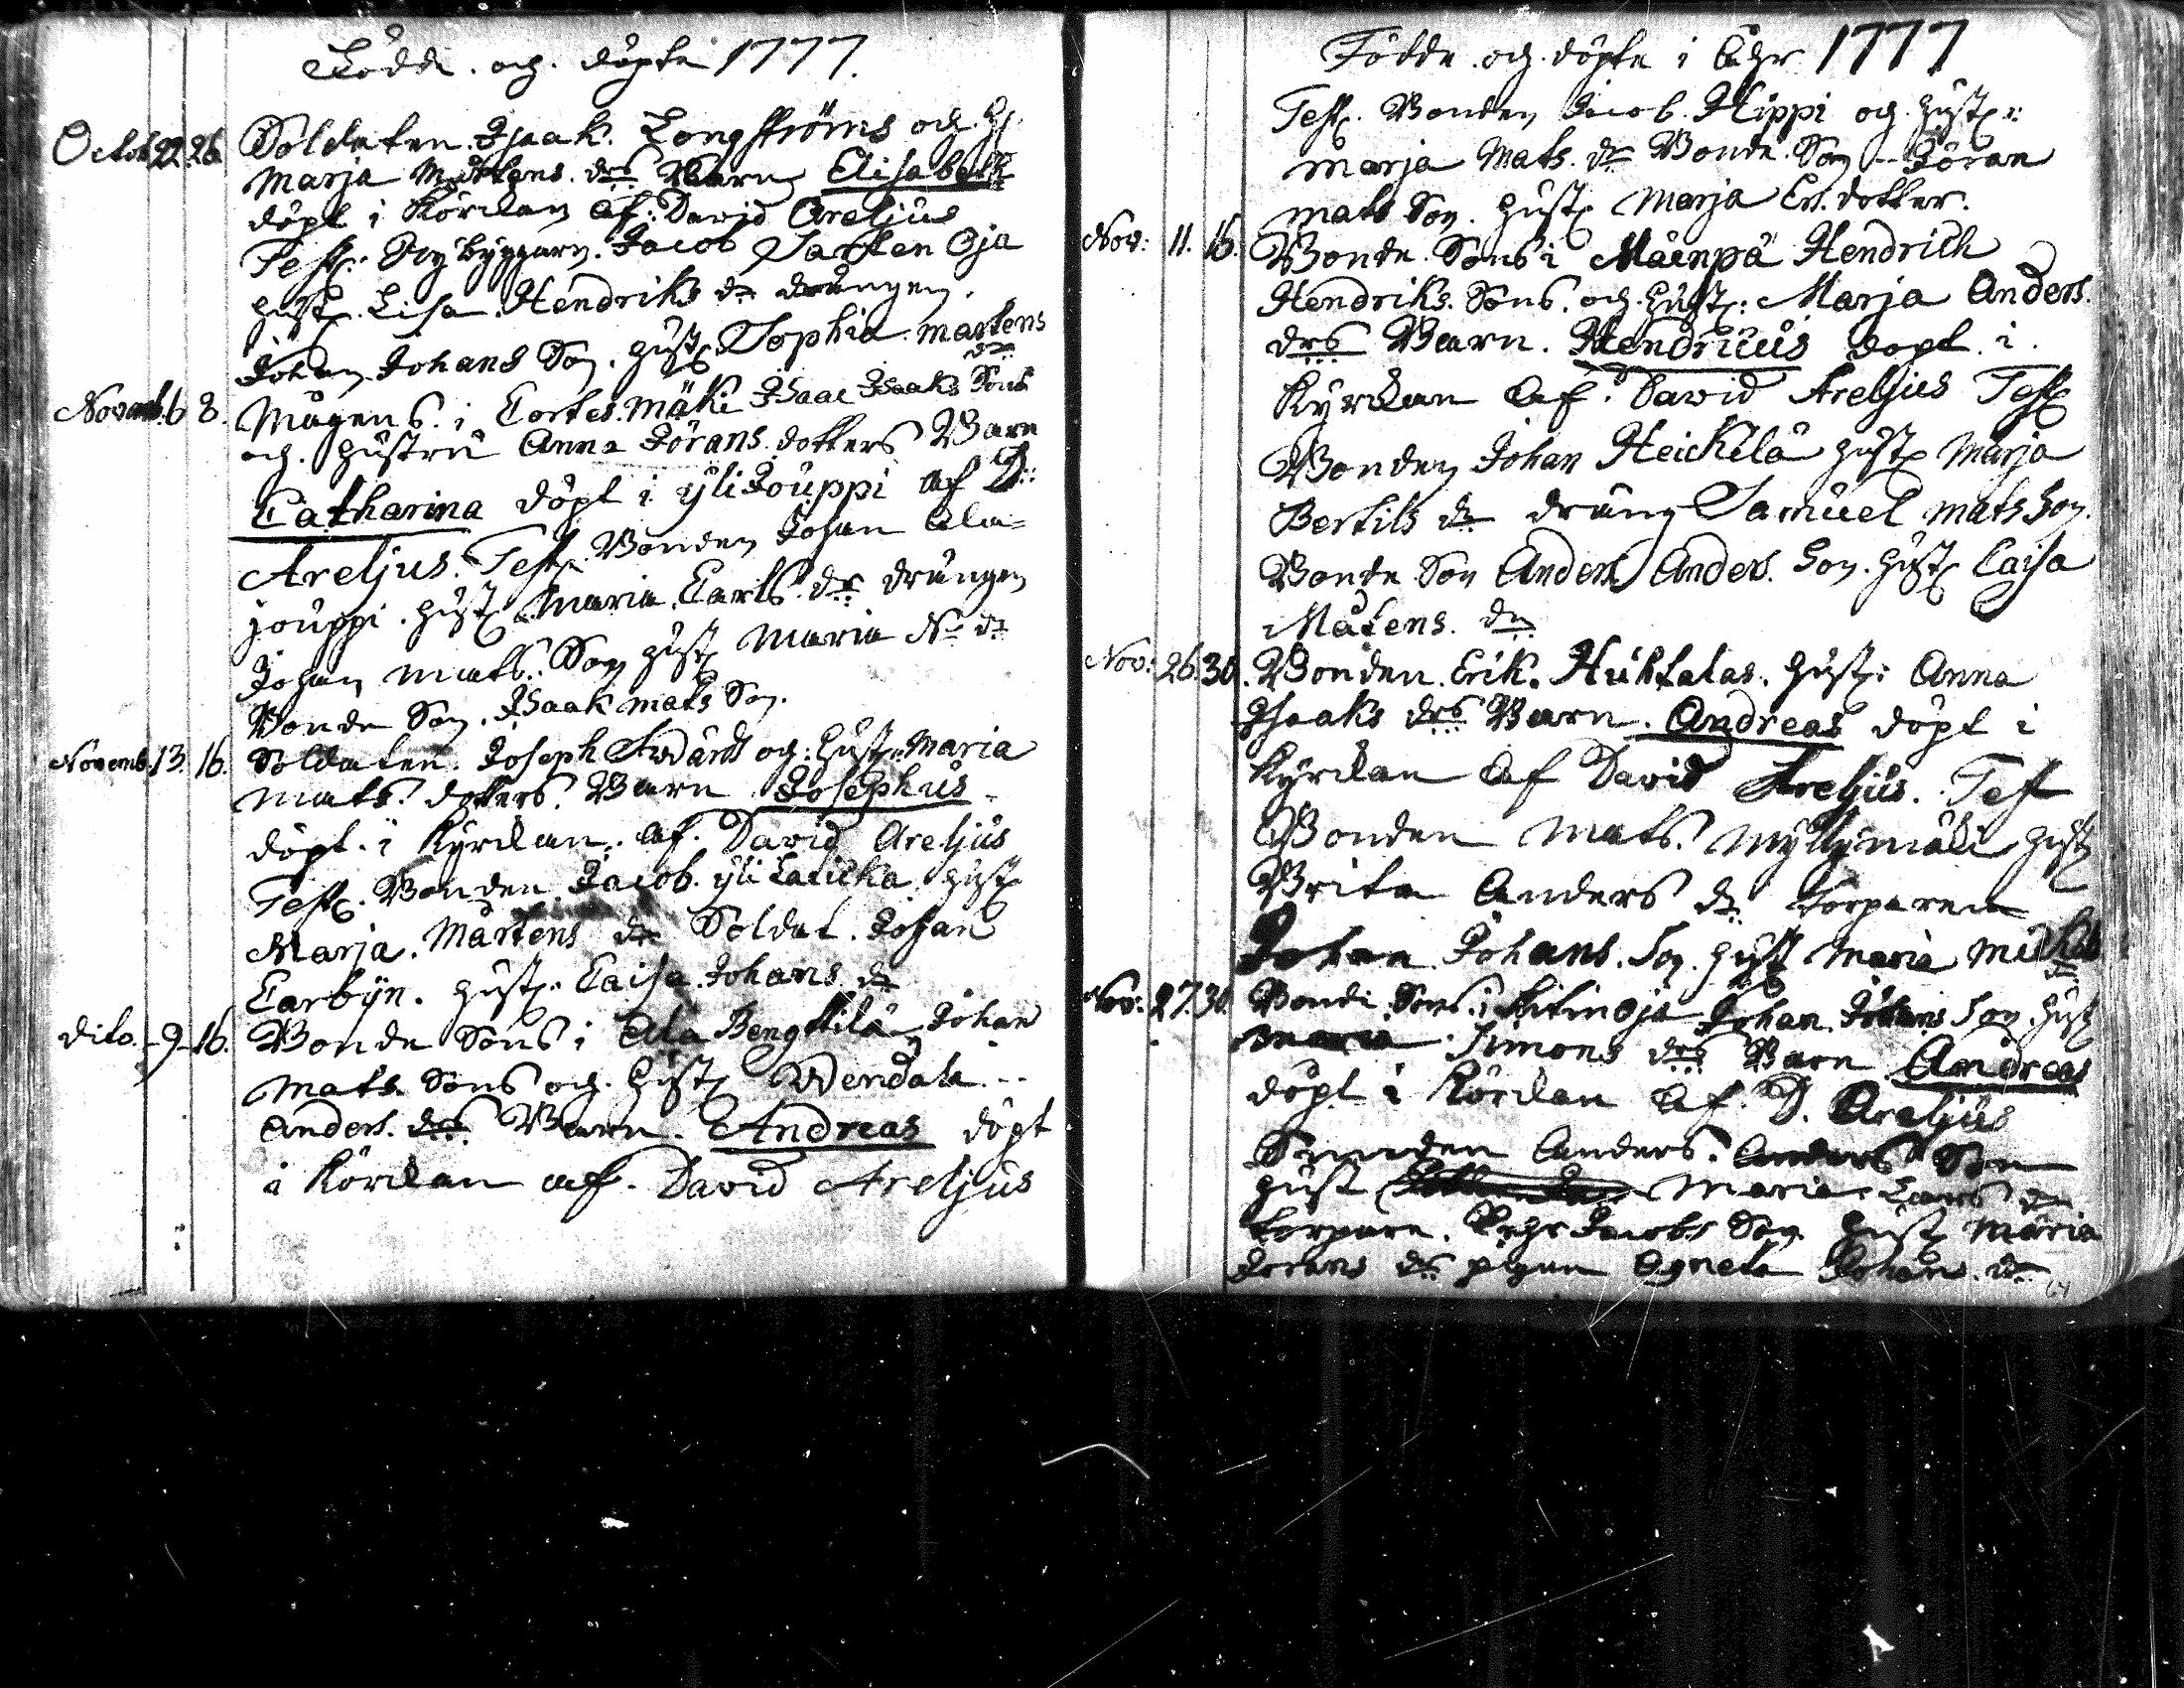 Födde. och. döpte 1777.
Octob. 22. 26. Soldaten. Isaak. Longströms och. H.
Marja Mårtens. drs Barn Elisabeth
döpt i Körckan af: David Areljus
Test: Nybyggarn. Jacob Sarkten Oja
hust. Lisa. Hendriks dr drängen.
Johan Johans Son. hust. Sophia. Martens
dr
Novemb. 6 8. Mågens. i Cortes. mäki Isaac Isaaks Sons
och. hustru Anna Jörans. dotters Barn
Catharina döpt i yliJouppi af D:
Areljus. Test. Bonden Johan Ala=
jouppi. hust. Maria. Carls. dr drängen
Johan mats. Son hust Maria N. dr
Bonde Son. Isaak mats Son.
Novemb. 13. 16. Soldaten. Joseph Swärds och: hust: Maria
mats. dotters. Barn Josephus
döpt. i Kyrckan. af. David Areljus
Test. Bonden Jacob. yli Laucka hust
Marja. Mårtens dr Soldat. Johan
Carbyn. hust. Caisa Johans dr
dito. 9. 16. Bonde Sons i Ala Bengttilä Johan
Mats. Sons och. hust Wendala
Anders. drs Barn. Andreas döpt
i Körckan af. David Areljus
Födde. och. döpte i Åhr 1777
Test. Bonden Jacob. Hippi och. hust:
Marja Mats. dr Bonde. Son Jöran
mats Son. hust Marja Er. dotter.
Nov: 11. 16. Bonde. Sons i Mäenpä Hendrich
Hendriks. Sons. och. hust: Marja Anders.
drs Barn. Hendricus döpt. i.
Kyrckan af. David Areljus Test
Bonden Johan Heickilä hust Marja
Bertils dr dräng Samuel mats Son.
Bonde Son Anders Anders. Son. hust Caisa
Måtens. dr
Nov: 26. 30. Bonden. Erik. Huhtalas. hust: Anna
Isaaks drs Barn. Andreas döpt i
Kyrckan af David Areljus. Test
Bonden Mats. Myllymäki hust
Brita Anders dr Torparen
Johan Johans. Son. hust Maria Mickels
dr
Nov: 27. 30. Bonde Sons. i Johan. Johans Son. hust
Maria Simons drs Barn Andreas
döpt i Körckan af. D. Areljus
Anders. Anders Son
hust Maria Lars dr
torparn. Jacobs Son hust Maria
Jorans dr pigan Agneta Johans. dr
64